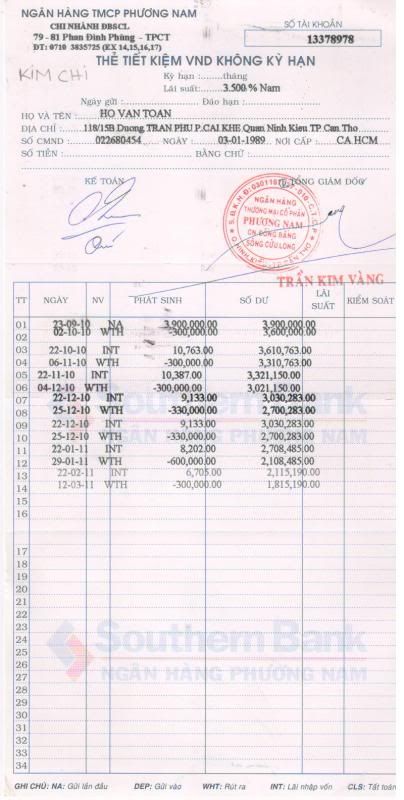 NGÂN HÀNG TMCP PHƯƠNG NAM
CHI NHÁNH ĐBSCL
79 - 81 Phan Đình Phùng - TPCT
ĐT: 0710 3835725 (EX 14,15,16,17)
SỐ TÀI KHOẢN
13378978
THẺ TIẾT KIỆM VND KHÔNG KỲ HẠN
KIM CHI
Kỳ hạn :........tháng
Lãi suất:.......3.500 % Nam
Ngày gửi :................ Đáo hạn :................
HỌ VÀ TÊN : HO VAN TOAN
ĐỊA CHỈ : 118/15B Duong TRAN PHU P.CAI KHE Quan Ninh Kieu TP Can Tho
SỐ CMND : 022680454 NGÀY : 03-01-1989 NƠI CẤP : CA HCM
SỐ TIỀN : BẰNG CHỮ :
KẾ TOÁN TỔNG GIÁM ĐỐC
NGÂN HÀNG
THƯƠNG MẠI CỔ PHẦN
PHƯƠNG NAM
CN. ĐỒNG BẰNG
SÔNG CỬU LONG
TRẦN KIM VÀNG
TT NGÀY NV PHÁT SINH SỐ DƯ LÃI SUẤT KIỂM SOÁT
01 23-09-10 NA 3,900,000.00 3,900,000.00
02 02-10-10 WTH -300,000.00 3,600,000.00
03 22-10-10 INT 10,763.00 3,610,763.00
04 06-11-10 WTH -300,000.00 3,310,763.00
05 22-11-10 INT 10,387.00 3,321,150.00
06 04-12-10 WTH -300,000.00 3,021,150.00
07 22-12-10 INT 9,133.00 3,030,283.00
08 25-12-10 WTH -330,000.00 2,700,283.00
09 22-12-10 INT 9,133.00 3,030,283.00
10 25-12-10 WTH -330,000.00 2,700,283.00
11 22-01-11 INT 8,202.00 2,708,485.00
12 29-01-11 WTH -600,000.00 2,108,485.00
13 22-02-11 INT 6,705.00 2,115,190.00
14 12-03-11 WTH -300,000.00 1,815,190.00
15
16
17
18
19
20
21
22
23
24
25
26
27
28
29
30
31
32
33
34
Southern Bank
NGÂN HÀNG PHƯƠNG NAM
Southern Bank
NGÂN HÀNG PHƯƠNG NAM
GHI CHÚ: NA: Gửi lần đầu DEP: Gửi vào WHT: Rút ra INT: Lãi nhập vốn CLS: Tất toán